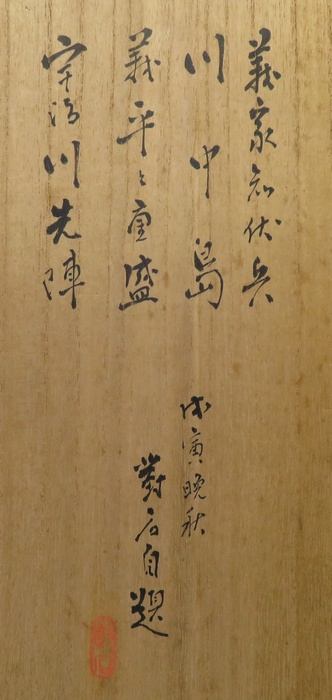 義家知伏兵
川中島
義平と重盛
宇治川先陣
戊寅晩秋
對石自題